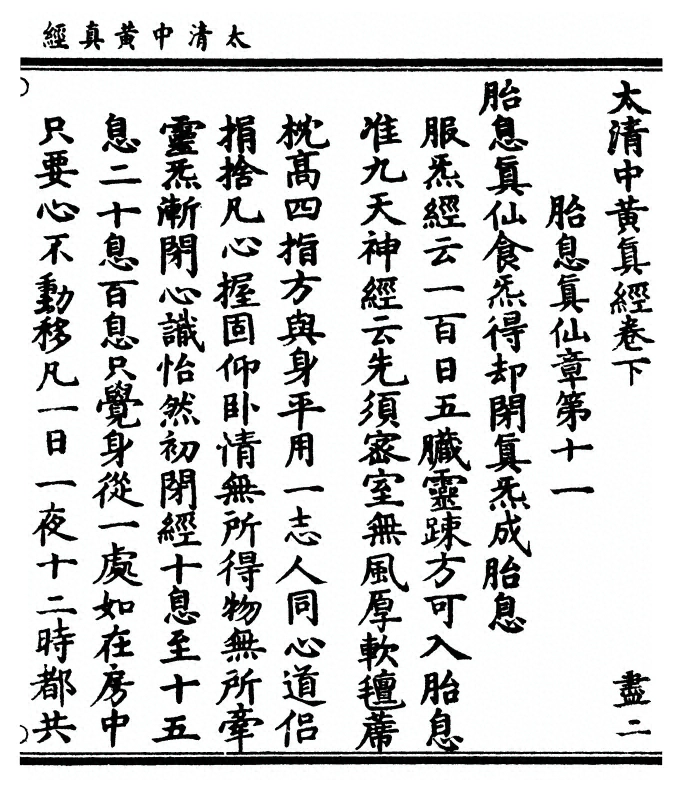 太清中黃真經
太清中黃真經卷下 盡二
胎息真仙章第十一
胎息真仙食炁得却閉真炁成胎息
服炁經云一百日五臓靈踈方可入胎息
准九天神經云先須密室無風厚軟氊蓆
枕高四指方與身平用一志人同心道侣
捐捨凡心握固仰卧情無所得物無所牽
靈炁漸閉心識怡然初閉經十息至十五
息二十息百息只覺身從一處如在房中
只要心不動移凡一日一夜十二時都共